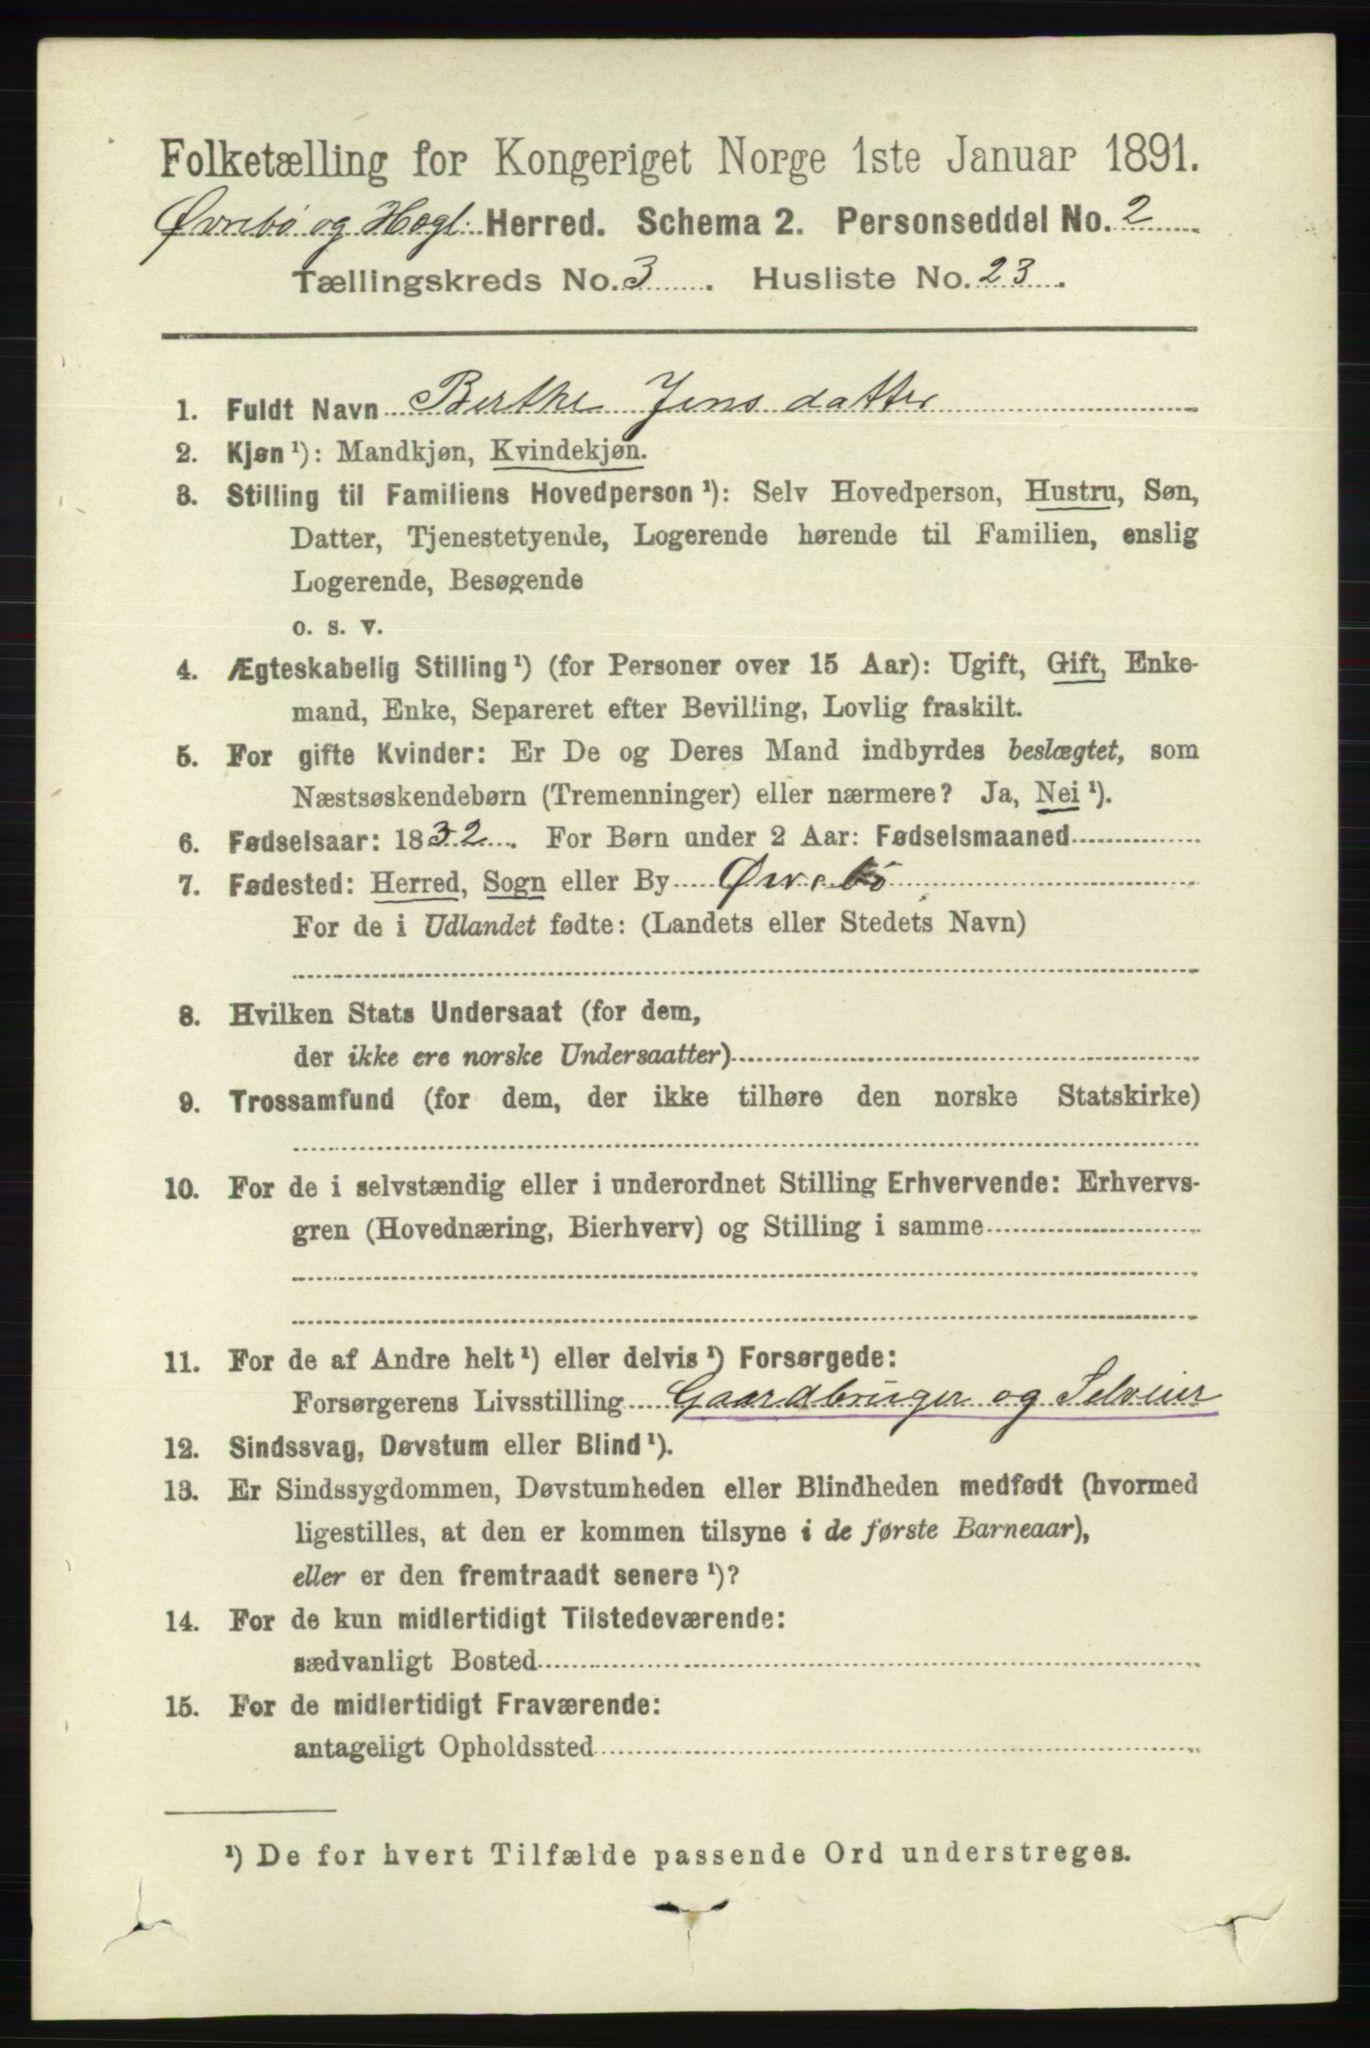 Folketælling for Kongeriget Norge 1ste Januar 1891.
Øvrebö og Hægl. Herred. Schema 2. Personseddel No. 2
Tællingskreds No. 3. Husliste No. 23.
1. Fuldt Navn Berthe Jensdatter
2. Kjøn¹): Mandkjøn, Kvindekjøn.
3. Stilling til Familiens Hovedperson¹): Selv Hovedperson, Hustru, Søn,
Datter, Tjenestetyende, Logerende hørende til Familien, enslig
Logerende, Besøgende
o. s. v.
4. Ægteskabelig Stilling¹) (for Personer over 15 Aar): Ugift, Gift, Enke-
mand, Enke, Separeret efter Bevilling, Lovlig fraskilt.
5. For gifte Kvinder: Er De og Deres Mand indbyrdes beslægtet, som
Næstsøskendebørn (Tremenninger) eller nærmere? Ja, Nei¹).
6. Fødselsaar: 1832. For Børn under 2 Aar: Fødselsmaaned
7. Fødested: Herred, Sogn eller By Øvrebö
For de i Udlandet fødte: (Landets eller Stedets Navn)
8. Hvilken Stats Undersaat (for dem,
der ikke ere norske Undersaatter)
9. Trossamfund (for dem, der ikke tilhøre den norske Statskirke)
10. For de i selvstændig eller i underordnet Stilling Erhvervende: Erhvervs-
gren (Hovednæring, Bierhverv) og Stilling i samme
11. For de af Andre helt¹) eller delvis¹) Forsørgede:
Forsørgerens Livsstilling Gaardbruger og Selveier
12. Sindssvag, Døvstum eller Blind¹).
13. Er Sindssygdommen, Døvstumheden eller Blindheden medfødt (hvormed
ligestilles, at den er kommen tilsyne i de første Barneaar),
eller er den fremtraadt senere¹)?
14. For de kun midlertidigt Tilstedeværende:
sædvanligt Bosted
15. For de midlertidigt Fraværende:
antageligt Opholdssted
¹) De for hvert Tilfælde passende Ord understreges.